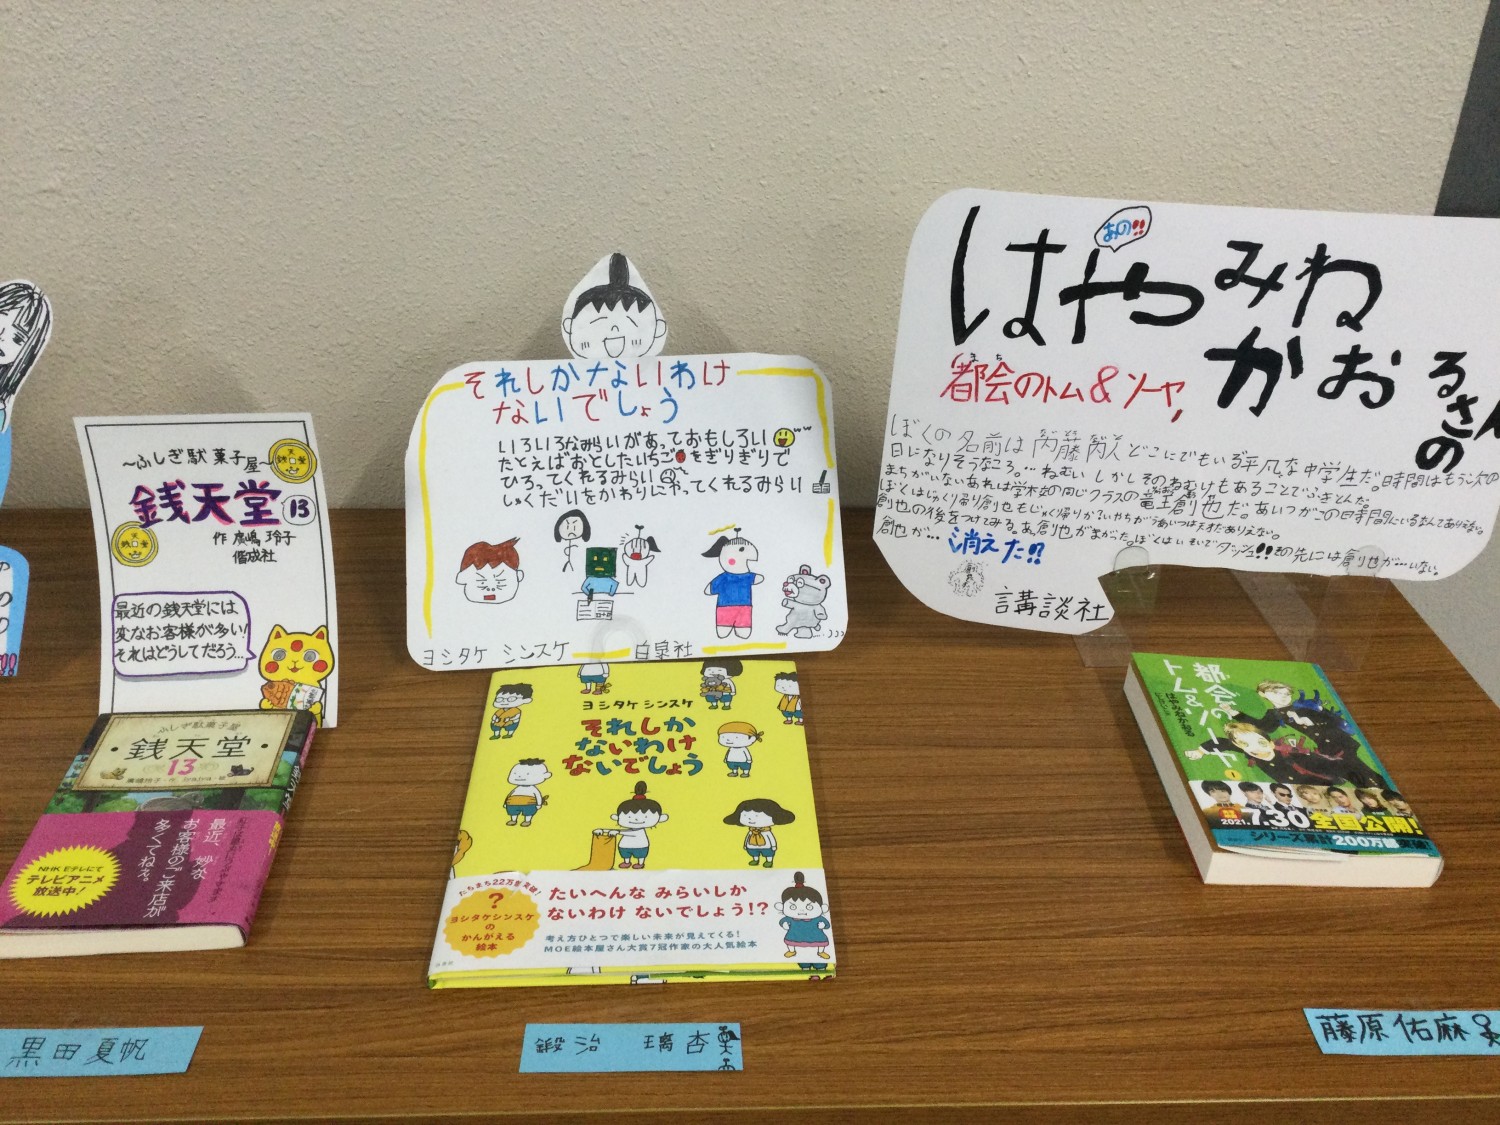 〜ふしぎ駄菓子屋〜
銭天堂 13
作 廣嶋 玲子
偕成社
最近の銭天堂には
変なお客様が多い!
それはどうしてだろう…
ふしぎ駄菓子屋
・銭天堂・
13
最近、妙な
お客様のご来店が
多くてねぇ。
NHK Eテレにて
テレビアニメ
放送中!
黒田夏帆
それしかないわけ
ないでしょう
いろいろなみらいがあっておもしろい
たとえばおとしたいちごをぎりぎりで
ひろってくれるみらい
しゅくだいをかわりにやってくれるみらい
ヨシタケ シンスケ 白泉社
ヨシタケ シンスケ
それしか
ないわけ
ないでしょう
たちまち22万部突破!
?
ヨシタケシンスケ
の
かんがえる
絵本
たいへんな みらいしか
ないわけ ないでしょう!?
考え方ひとつで楽しい未来が見えてくる!
MOE絵本屋さん大賞7冠作家の大人気絵本
鍛治 璃杏
あの!!
はやみね
かおるさんの
都会のトム&ソーヤ
まち
ぼくの名前は内藤内人どこにでもいる平凡な中学生だ。時間はもう次の
日になりそうなころ。…ねむい しかしそのねむけもあることでふきとんだ。
まちがいないあれは学校の同じクラスの竜王創也だ。あいつがこの時間にいるなんてありえない。
創也の後をつけてみる。あ、創也がまがった。ぼくはいそいでダッシュ!!その先には創也が…いない。
創也が… 消えた!!
講談社
都会の
トム&ソーヤ
はやみねかおる
1
2021.7.30 全国公開!
シリーズ累計200万部突破!
藤原佑麻